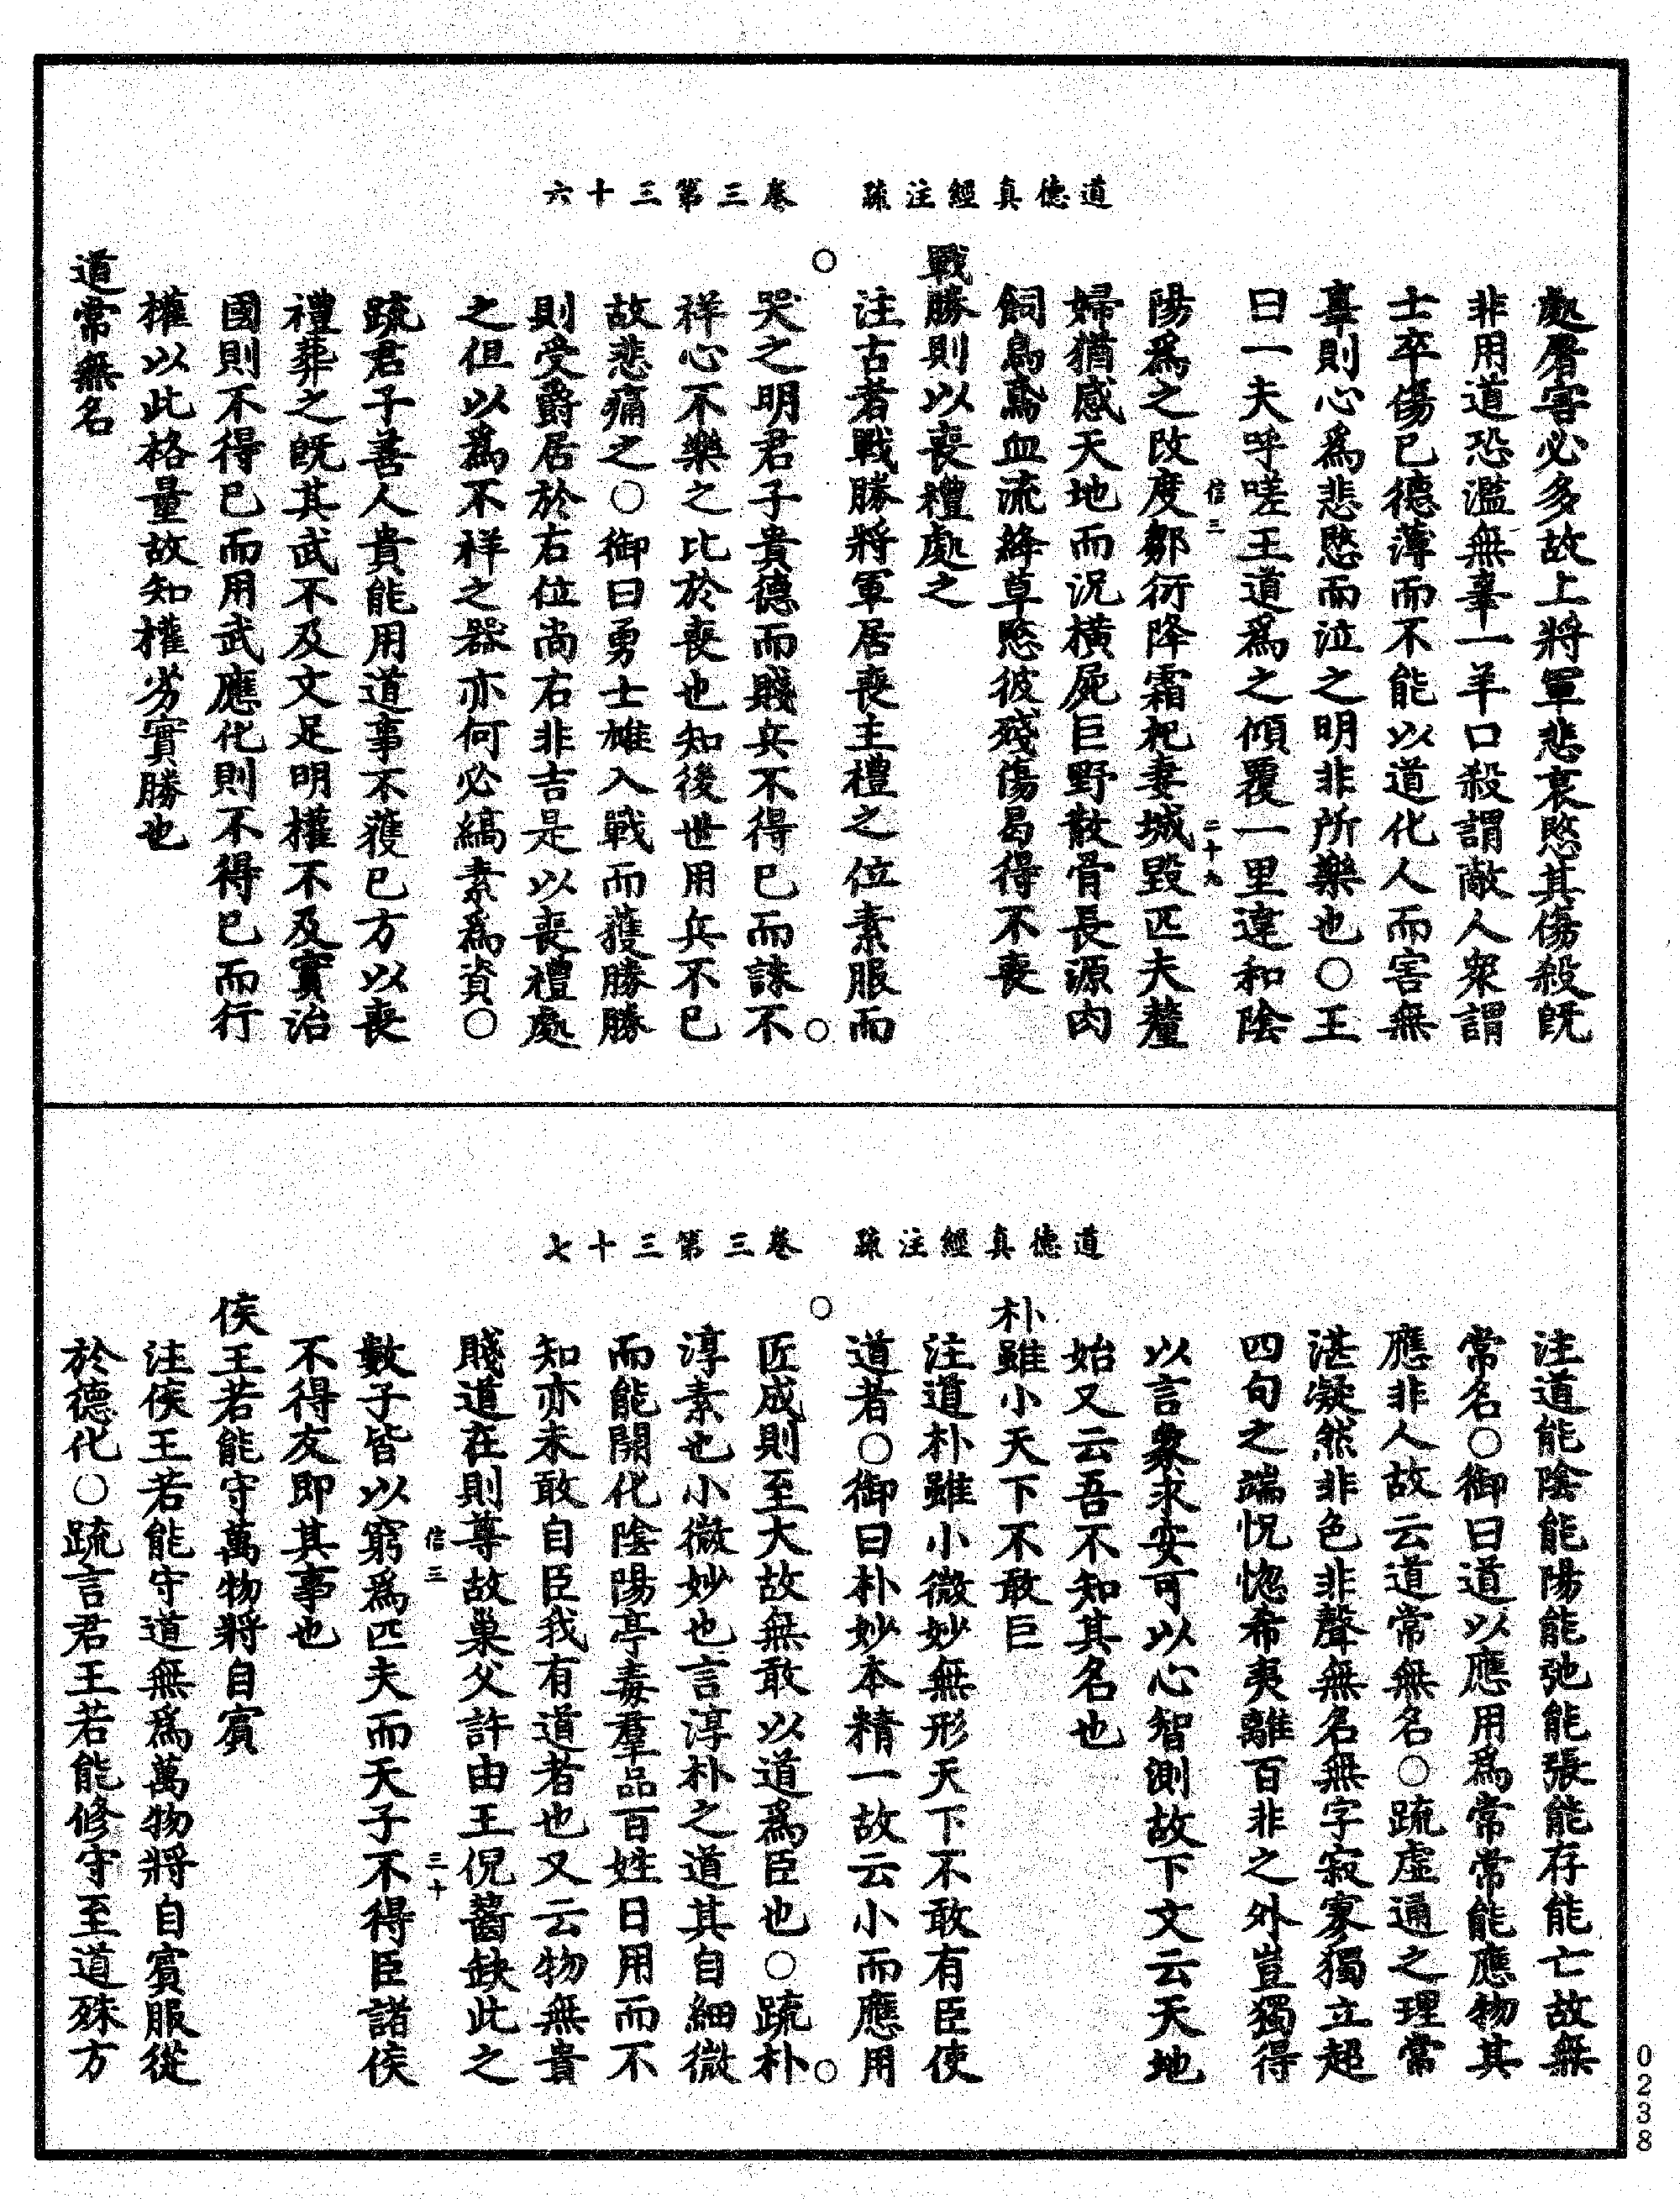 道德真經注疏　卷三第三十六
處屠害必多故上將軍悲哀愍其傷殺旣
非用道恐濫無辜一羊口殺謂敵人衆謂
士卒傷已德薄而不能以道化人而害無
辜則心爲悲愍而泣之明非所樂也○王
曰一夫呼嗟王道爲之傾覆一里違和陰
信三　二十九
陽爲之改度鄒衍降霜杞妻城毀匹夫嫠
婦猶感天地而況橫屍巨野散骨長源肉
飼鳥鳶血流絳草愍彼殘傷曷得不喪
戰勝則以喪禮處之
注古者戰勝將軍居喪主禮之位素服而
哭之明君子貴德而賤兵不得已而誅不
祥心不樂之比於喪也知後世用兵不已
故悲痛之○御曰勇士雄入戰而獲勝勝
則受爵居於右位尚右非吉是以喪禮處
之但以爲不祥之器亦何必縞素爲資○
疏君子善人貴能用道事不獲已方以喪
禮葬之旣其武不及文足明權不及實治
國則不得已而用武應化則不得已而行
權以此格量故知權劣實勝也
道常無名
道德真經注疏　卷三第三十七
注道能陰能陽能弛能張能存能亡故無
常名○御曰道以應用爲常常能應物其
應非人故云道常無名○疏虛通之理常
湛凝然非色非聲無名無字寂寥獨立超
四句之端怳惚希夷離百非之外豈獨得
以言象求安可以心智測故下文云天地
始又云吾不知其名也
朴雖小天下不敢巨
注道朴雖小微妙無形天下不敢有臣使
道者○御曰朴妙本精一故云小而應用
匠成則至大故無敢以道爲臣也○疏朴
淳素也小微妙也言淳朴之道其自細微
而能開化陰陽亭毒羣品百姓日用而不
知亦未敢自臣我有道者也又云物無貴
賤道在則尊故巢父許由王倪齧缺此之
信三　三十
數子皆以窮爲匹夫而天子不得臣諸侯
不得友即其事也
侯王若能守萬物將自賓
注侯王若能守道無爲萬物將自賓服從
於德化○疏言君王若能修守至道殊方
0238